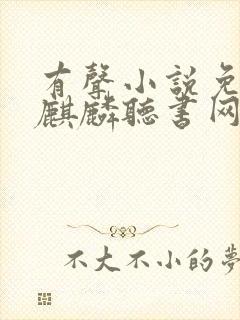 有聲小說免
麒麟聽書网
不大不小的夢